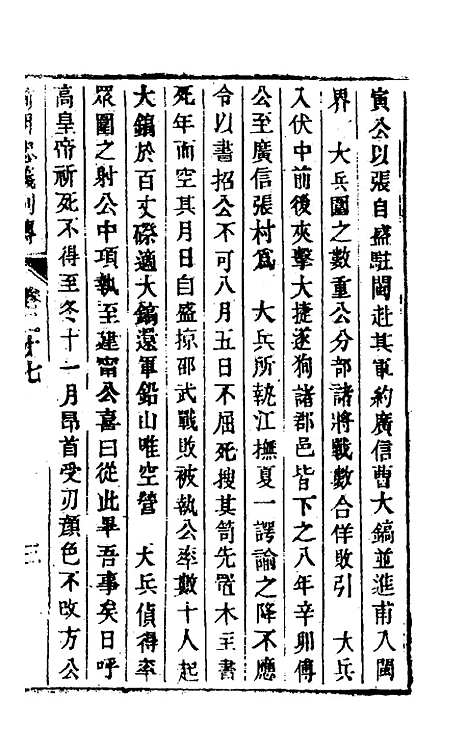 寅公以張自盛駐閩赴其軍約廣信曹大鎬並進甫入閩
界　大兵圍之數重公分部諸將戰數合佯敗引　大兵
入伏中前後夾擊大捷遂狥諸郡邑皆下之八年辛卯傅
公至廣信張村爲　大兵所執江撫夏一諤諭之降不應
令以書招公不可八月五日不屈死搜其笥先置木主書
死年而空其月日自盛掠邵武戰敗被執公率數十人起
大鎬於百丈磜適大鎬還軍鉛山唯空營　大兵偵得率
衆圍之射公中項執至建甯公喜曰從此畢吾事矣日呼
高皇帝祈死不得至冬十一月昂首受刃顏色不改方公
前明忠義別傳　卷二十七　三